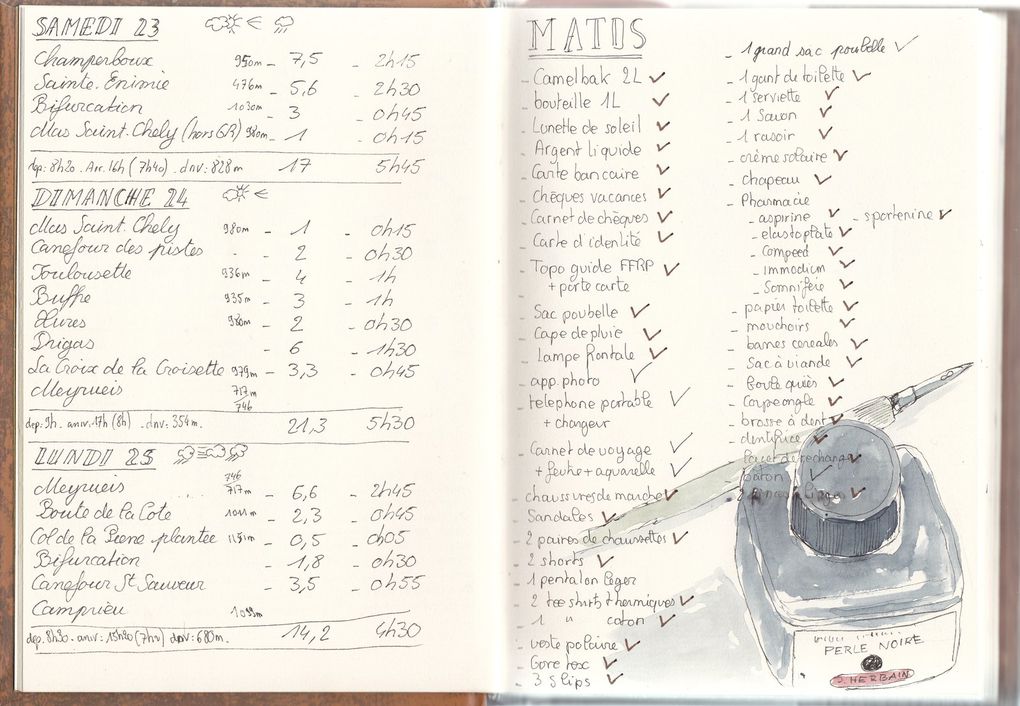 SAMEDI 23
Champerboux 950m - 7,5 - 2h15
Sainte. Enimie 476m - 5,6 - 2h30
Bifurcation 1030m - 3 - 0h45
Mas Saint. Chely (hors GR) 980m - 1 - 0h15
dep: 8h20. Arr. 16h (7h40). dnv: 828m 17 5h45
DIMANCHE 24
Mas Saint. Chely 980m - 1 - 0h15
Carrefour des pistes - 2 - 0h30
Toulousette 936m - 4 - 1h
Buffre 935m - 3 - 1h
Hures 980m - 2 - 0h30
Drigas - 6 - 1h30
La Croix de la Croisette 979m - 3,3 - 0h45
Meyrueis 717m
746
dep: 9h. arriv: 17h (8h). dnv: 354m. 21,3 5h30
LUNDI 25
746
Meyrueis 717m - 6,6 - 2h45
Boute de la Cote - 2,3 - 0h45
Col de la Pierre plantée 1151m - 0,5 - 0h05
Bifurcation - 1,8 - 0h30
Carrefour St Sauveur - 3,5 - 0h55
Camprieu 1099m
dep. 8h30 - arriv: 15h20 (7h) dnv: 680m. 14,2 4h30
MATOS
- Camelbak 2L ✓
- bouteille 1L ✓
- Lunette de soleil ✓
- Argent liquide ✓
- Carte bancaire ✓
- Chèques vacances ✓
- Carnet de chèques ✓
- Carte d'identité ✓
- Topo guide FFRP ✓
+ porte carte
- Sac poubelle ✓
- Cape de pluie ✓
- lampe frontale ✓
- app. photo ✓
- telephone portable ✓
+ chargeur
- Carnet de voyage ✓
+ feutre + aquarelle ✓
- chaussures de marche ✓
- Sandales ✓
- 2 paires de chaussettes ✓
- 2 shorts ✓
- 1 pentalon leger
- 2 tee shirts thermiques ✓
- 1 " coton ✓
- veste polaire ✓
- Gore tex ✓
- 3 Slips ✓
- 1 grand sac poubelle ✓
- 1 gant de toilette ✓
- 1 serviette ✓
- 1 Savon ✓
- 1 rasoir ✓
- crème solaire ✓
- chapeau ✓
- Pharmacie
- aspirine ✓ - sportenine ✓
- elastoplaste ✓
- Compeed ✓
- Immodium ✓
- Somnifère ✓
- papier toilette ✓
- mouchoirs ✓
- barres cereales ✓
- Sac à viande ✓
- Boule quiès ✓
- Coupe ongle ✓
- brosse à dent ✓
- dentifrice ✓
- lacet de rechange ✓
- baton ✓
PERLE NOIRE
J. HERBAIN